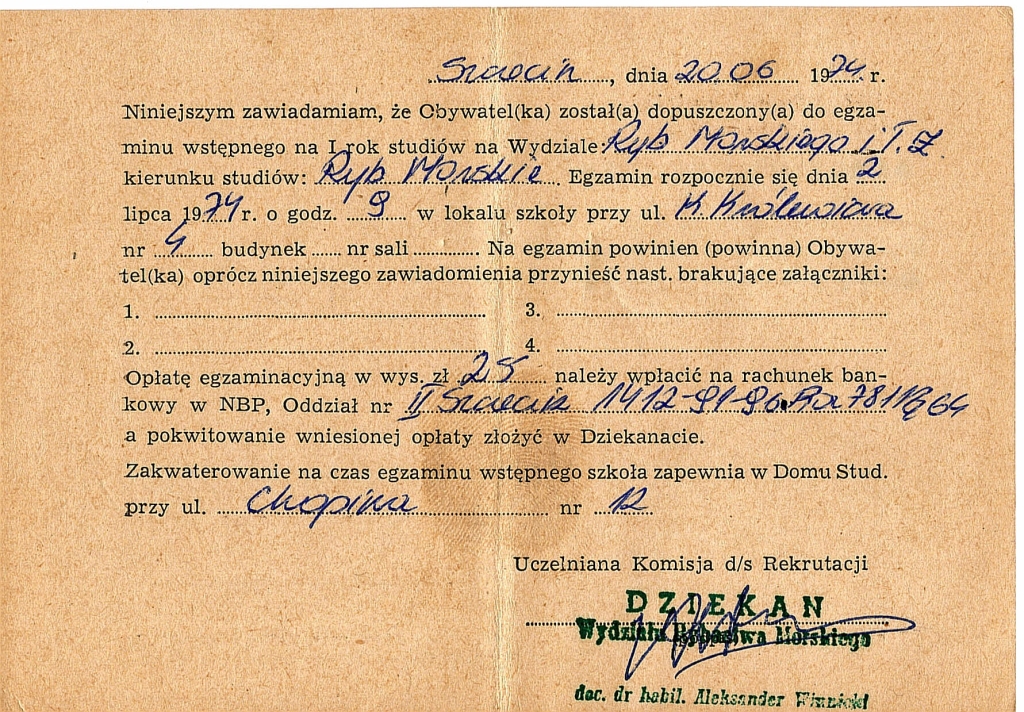 Szczecin, dnia 20 06 1974 r.
Niniejszym zawiadamiam, że Obywatel(ka) został(a) dopuszczony(a) do egza-
minu wstępnego na I rok studiów na Wydziale Ryb Morskiego i T. Ż
kierunku studiów: Ryb Morskie Egzamin rozpocznie się dnia 2
lipca 1974 r. o godz. 9 w lokalu szkoły przy ul. K Królewicza
nr 4 budynek ...... nr sali ............. Na egzamin powinien (powinna) Obywa-
tel(ka) oprócz niniejszego zawiadomienia przynieść nast. brakujące załączniki:
1. 3.
2. 4.
Opłatę egzaminacyjną w wys. zł 25 należy wpłacić na rachunek ban-
kowy w NBP, Oddział nr II Szczecin 1412-91-96
a pokwitowanie wniesionej opłaty złożyć w Dziekanacie.
Zakwaterowanie na czas egzaminu wstępnego szkoła zapewnia w Domu Stud.
przy ul. Chopina nr
Uczelniana Komisja d/s Rekrutacji
DZIEKAN
Wydziału Rybactwa Morskiego
doc. dr habil. Aleksander Winnicki